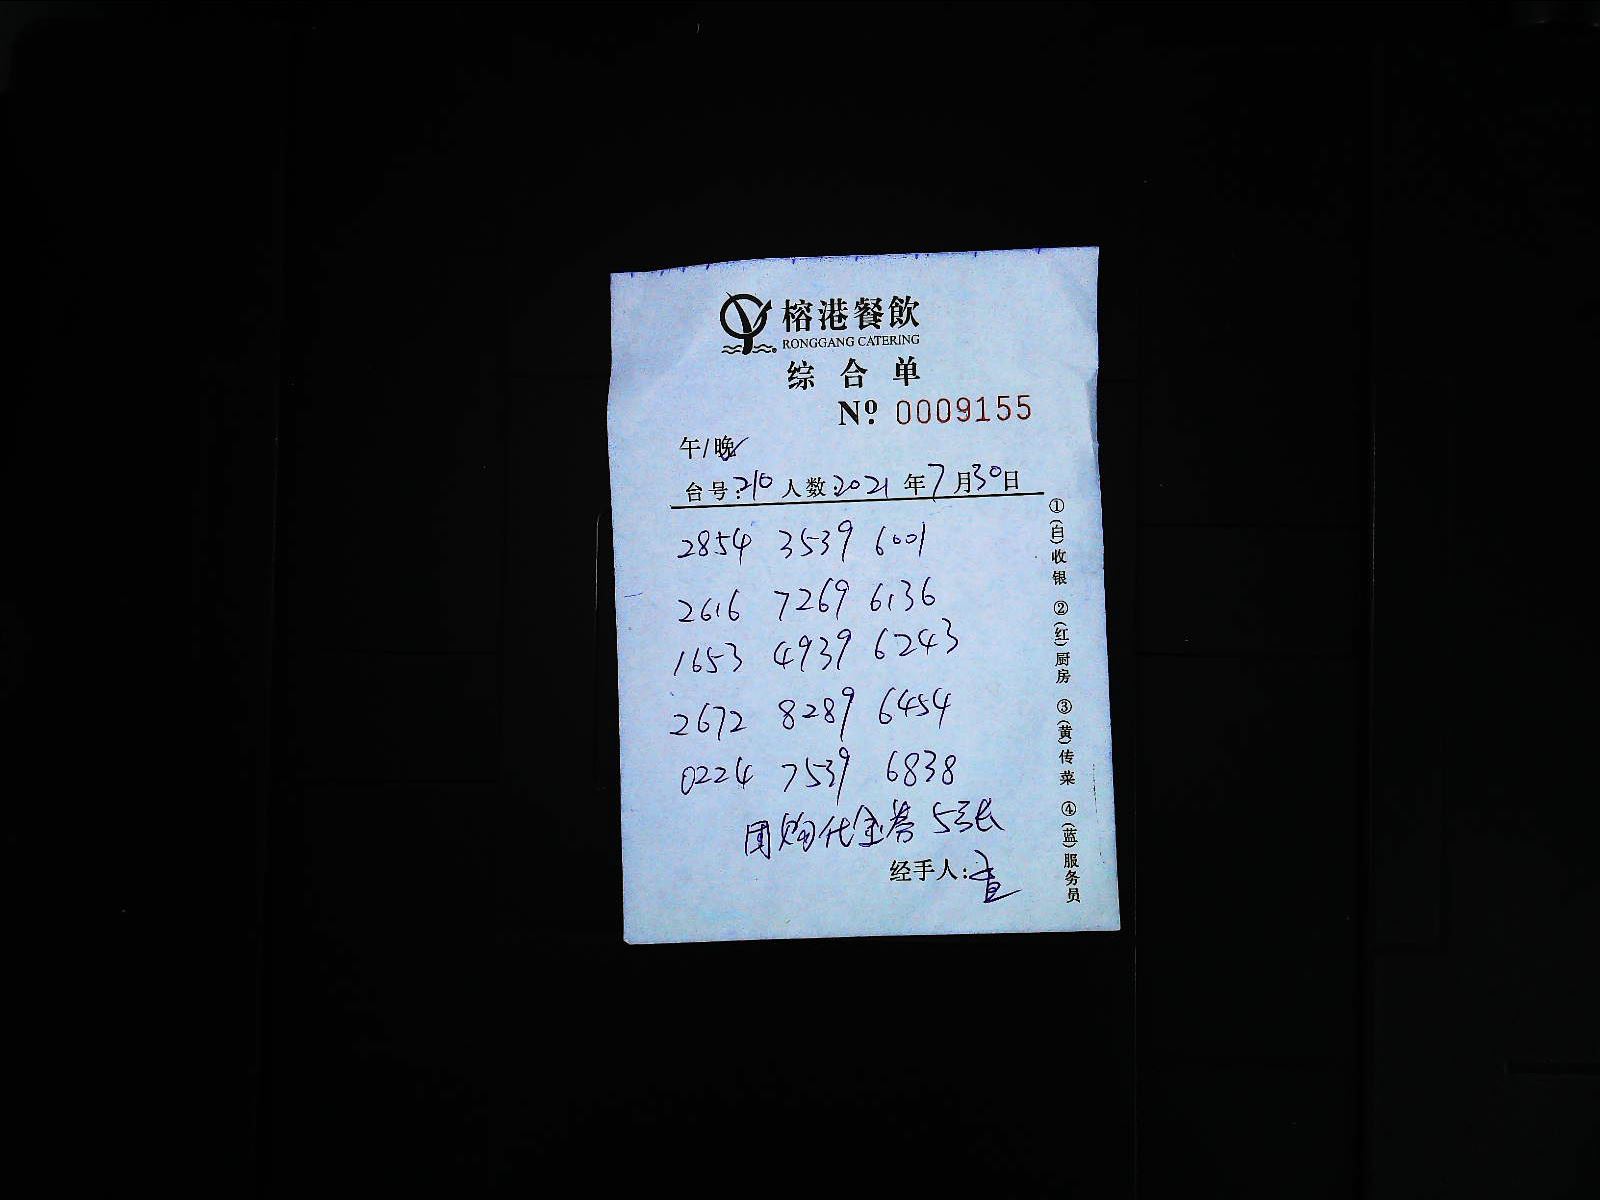 榕港餐飲
RONGGANG CATERING
综合单
Nº. 0009155
午/晚
台号:210 人数:2021年7月30日
2854 3539 6001
2616 7269 6136
1653 4939 6243
2672 8289 6454
0224 7539 6838
团购代金券 5张
经手人:
①(白)收银 ②(红)厨房 ③(黄)传菜 ④(蓝)服务员